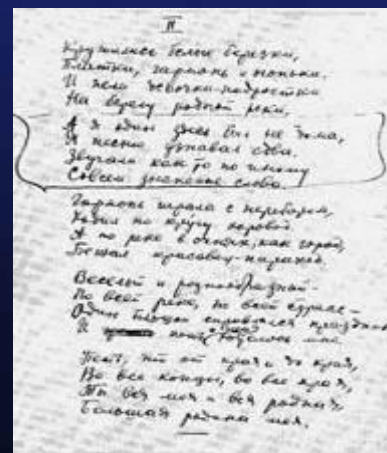 II
Кружились белые березки,
Платки, гармонь и огоньки.
И пели девочки-подростки
На берегу родной реки.
А я один здесь был не дома,
Я песню узнавал едва.
Звучали как то по иному
Совсем знакомые слова.
Гармонь играла с перебором,
Ходил по кругу хоровод
А по реке в огнях, как город,
Бежал красавец-пароход.
Веселый и разнообразный
По всей реке, по всей стране –
Один большой справлялся праздник
И петь хотелось мне.
Петь, что от края и до края,
Во все концы, во все края,
Ты вся моя и вся родная,
Большая родина моя.